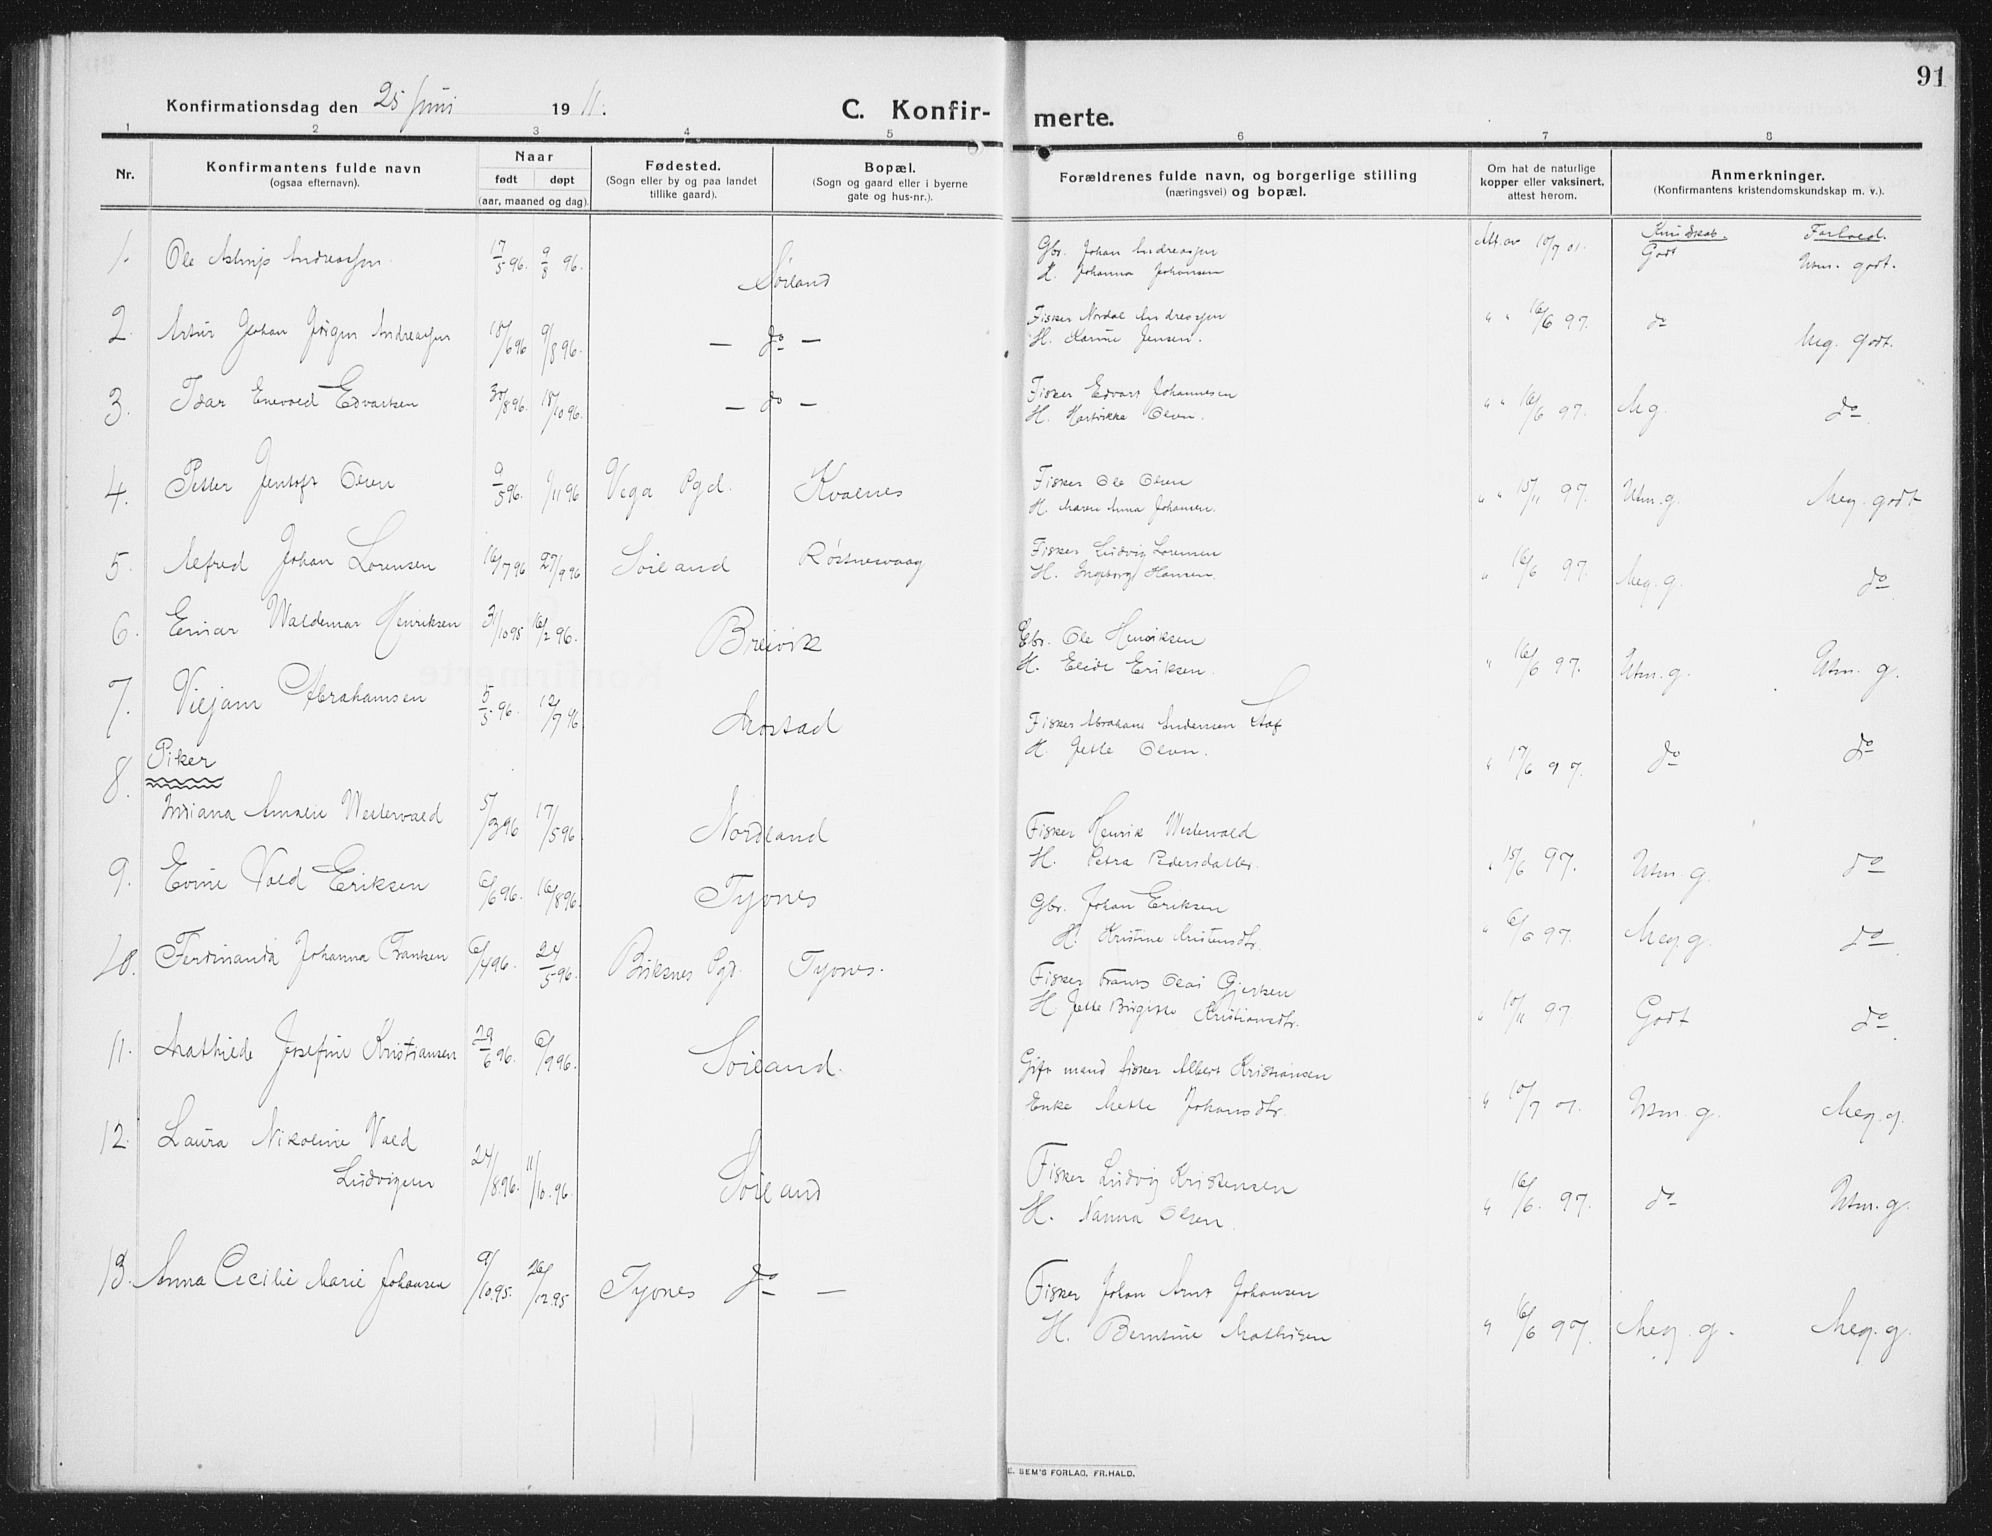 91
Konfirmationsdag den 25 Juni 1911.
C. Konfir-merte.
1 2 3 4 5 6 7 8
Nr.
Konfirmantens fulde navn
(ogsaa efternavn).
Naar
født døpt
(aar, maaned og dag).
Fødested.
(Sogn eller by og paa landet
tillike gaard).
Bopæl.
(Sogn og gaard eller i byerne
gate og hus-nr.).
Forældrenes fulde navn, og borgerlige stilling
(næringsvei) og bopæl.
Om hat de naturlige
kopper eller vaksinert,
attest herom.
Anmerkninger.
(Konfirmantens kristendomskundskap m. v.).
Kundskab. Forhold.
1. Ole Astrup Andreassen 17/5 96. 9/8 96. Søiland
Gbr. Johan Andreassen
H. Johanna Johansen
Att. av 10/7 01. Godt Utm. godt.
2. Artur Johan Jørgen Andreassen 18/6 96 9/8 96. — do —
Fisker Nordal Andreassen
H. Karine Jensen.
" " 16/6 97. do Meg. godt.
3. Idar Enevold Edvartsen 30/8 96. 18/10 96. — do —
Fisker Edvart Johannesen
H. Hartvikke Olsen.
" " 16/6 97. Mg. do
4. Petter Jentoft Olsen 9/5 96. 1/11 96 Vega Pgd. Kvalnes
Fisker Ole Olsen
H. Maren Anna Johansen.
" " 15/11 97. Utm. g. Meg. godt
5. Alfred Johan Lorensen 16/7 96 27/9 96 Søiland Røstnesvaag
Fisker Ludvig Lorensen
H. Ingeborg Hansen.
" 16/6 97. Meg. g. do
6. Einar Waldemar Henriksen 31/10 95 16/2 96. Breivik
Gbr. Ole Henriksen
H. Elide Eriksen.
" 16/6 97. Utm. g. Utm. g.
7. Viljam Abrahamsen 5/5 96. 12/7 96. Mostad
Fisker Abraham Andersen
H. Jette Olsen.
" 17/6 97. do do
Piker
8. Indiana Amalie Westervold 5/3 96 17/5 96. Nordland
Fisker Henrik Westervold
H. Petra Pedersdatter.
" 15/6 97. Utm. g. do
9. Evine Vold Eriksen 6/6 96. 16/8 96. Tyvnes
Gbr. Johan Eriksen
H. Kristine Kristensdtr.
" 6/6 97. Meg. g. do
10. Ferdinanda Johanna Frantsen 6/4 96. 24/5 96. Buksnes Pgd. Tyvnes.
Fisker Frants Olai Gjertsen
H. Jette Birgitte Kristiansdtr.
" 10/11 97 Godt do
11. Mathilde Josefine Kristiansen 29/6 96. 6/9 96. Søiland.
Gift mand fisker Albert Kristiansen
Enke Mette Johansdtr.
" 10/7 01. Utm. g. Meg. g.
12. Laura Nikoline Vold
Ludvigsen 24/8 96. 11/10. 96. Søiland
Fisker Ludvig Kristensen
H. Nanna Olsen.
" 16/6. 97. do Utm. g.
13. Anna Cecilie Marie Johansen 9/10.95. 26/12.95 Tyvnes do —
Fisker Johan Arnt Johansen
H. Berntine Mathisen
" 16/6 97. Meg. g. Meg. g.
E. SEM'S FORLAG, FR.HALD.